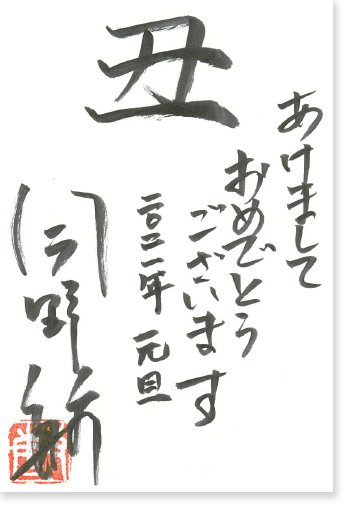 丑
あけまして
おめでとう
ございます
二〇二一年 元旦